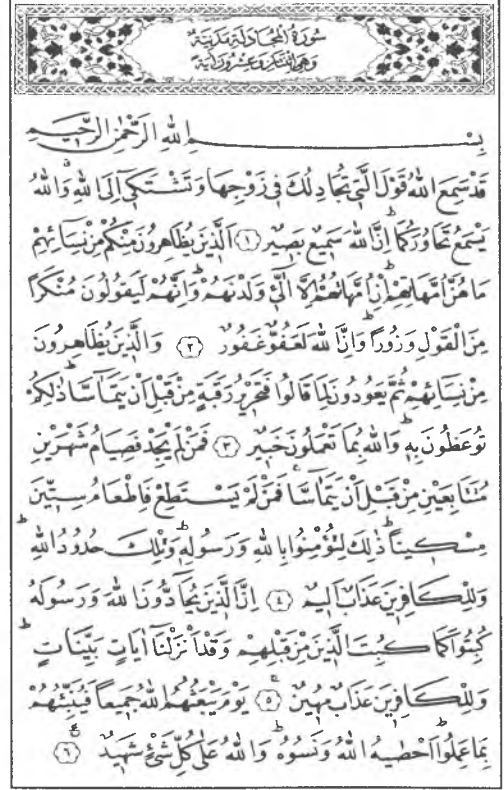 سُورَةُ الْمُجَادَلَةِ مَدَنِيَّةٌ
وَهِيَ اثْنَتَانِ وَعِشْرُونَ اٰيَةً
بِسْمِ اللّٰهِ الرَّحْمٰنِ الرَّحِيمِ
قَدْ سَمِعَ اللّٰهُ قَوْلَ الَّتِي تُجَادِلُكَ فِي زَوْجِهَا وَتَشْتَكِي اِلَى اللّٰهِ وَاللّٰهُ
يَسْمَعُ تَحَاوُرَكُمَا اِنَّ اللّٰهَ سَمِيعٌ بَصِيرٌ ﴿١﴾ اَلَّذِينَ يُظَاهِرُونَ مِنْكُمْ مِنْ نِسَائِهِمْ
مَا هُنَّ اُمَّهَاتِهِمْ اِنْ اُمَّهَاتُهُمْ اِلَّا الّٰٓئِي وَلَدْنَهُمْ وَاِنَّهُمْ لَيَقُولُونَ مُنْكَرًا
مِنَ الْقَوْلِ وَزُورًا وَاِنَّ اللّٰهَ لَعَفُوٌّ غَفُورٌ ﴿٢﴾ وَالَّذِينَ يُظَاهِرُونَ
مِنْ نِسَائِهِمْ ثُمَّ يَعُودُونَ لِمَا قَالُوا فَتَحْرِيرُ رَقَبَةٍ مِنْ قَبْلِ اَنْ يَتَمَاسَّا ذٰلِكُمْ
تُوعَظُونَ بِهِ وَاللّٰهُ بِمَا تَعْمَلُونَ خَبِيرٌ ﴿٣﴾ فَمَنْ لَمْ يَجِدْ فَصِيَامُ شَهْرَيْنِ
مُتَتَابِعَيْنِ مِنْ قَبْلِ اَنْ يَتَمَاسَّا فَمَنْ لَمْ يَسْتَطِعْ فَاِطْعَامُ سِتِّينَ
مِسْكِينًا ذٰلِكَ لِتُؤْمِنُوا بِاللّٰهِ وَرَسُولِهِ وَتِلْكَ حُدُودُ اللّٰهِ
وَلِلْكَافِرِينَ عَذَابٌ اَلِيمٌ ﴿٤﴾ اِنَّ الَّذِينَ يُحَادُّونَ اللّٰهَ وَرَسُولَهُ
كُبِتُوا كَمَا كُبِتَ الَّذِينَ مِنْ قَبْلِهِمْ وَقَدْ اَنْزَلْنَا اٰيَاتٍ بَيِّنَاتٍ
وَلِلْكَافِرِينَ عَذَابٌ مُهِينٌ ﴿٥﴾ يَوْمَ يَبْعَثُهُمُ اللّٰهُ جَمِيعًا فَيُنَبِّئُهُمْ
بِمَا عَمِلُوا اَحْصٰيهُ اللّٰهُ وَنَسُوهُ وَاللّٰهُ عَلٰى كُلِّ شَيْءٍ شَهِيدٌ ﴿٦﴾